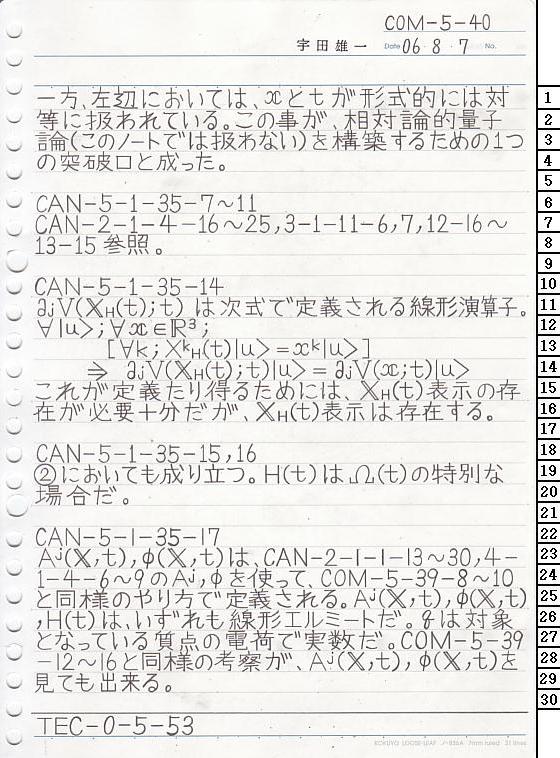 COM-5-40
宇田雄一 Date 06・8・7 No.
一方、左辺においては、xとtが形式的には対
等に扱われている。この事が、相対論的量子
論(このノートでは扱わない)を構築するための1つ
の突破口と成った。
CAN-5-1-35-7~11
CAN-2-1-4-16~25,3-1-11-6,7,12-16~
13-15参照。
CAN-5-1-35-14
∂jV(XH(t);t)は次式で定義される線形演算子。
∀|u>;∀x∈R³;
[∀k;XᵏH(t)|u>=xᵏ|u>]
⇒ ∂jV(XH(t);t)|u>=∂jV(x;t)|u>
これが定義たり得るためには、XH(t)表示の存
在が必要十分だが、XH(t)表示は存在する。
CAN-5-1-35-15,16
②においても成り立つ。H(t)はΩ(t)の特別な
場合だ。
CAN-5-1-35-17
Aʲ(X,t),φ(X,t)は、CAN-2-1-1-13~30,4-
1-4-6~9のAʲ,φを使って、COM-5-39-8~10
と同様のやり方で定義される。Aʲ(X,t),φ(X,t)
,H(t)は、いずれも線形エルミートだ。qは対象
となっている質点の電荷で実数だ。COM-5-39
-12~16と同様の考察が、Aʲ(X,t),φ(X,t)を
見ても出来る。
TEC-0-5-53
KOKUYO LOOSE-LEAF ノ-836A 7mm ruled 31 lines
1
2
3
4
5
6
7
8
9
10
11
12
13
14
15
16
17
18
19
20
21
22
23
24
25
26
27
28
29
30